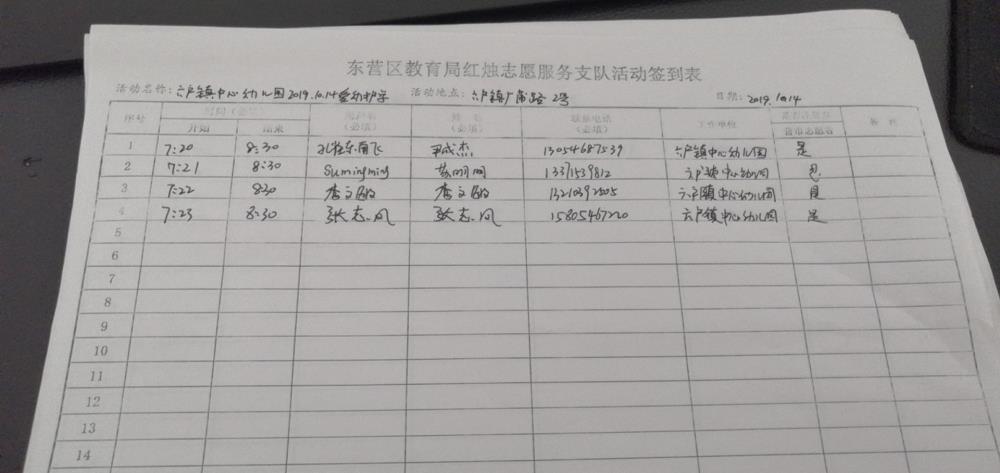 东营区教育局红烛志愿服务支队活动签到表
活动名称：六户镇中心幼儿园2019.10.14爱幼护学 活动地点：六户镇广蒲路2号 日期：2019.10.14
序号 时间（必填） 用户名（必填） 姓名（必填） 联系电话（必填） 工作单位 是否注册在营市志愿者 备注
开始 结束
1 7:20 8:30 孔雀东南飞 成杰 13054687539 六户镇中心幼儿园 是
2 7:21 8:30 Sumingming 苏明明 13371539812 六户镇中心幼儿园 是
3 7:22 8:30 李文敏 李文敏 六户镇中心幼儿园 是
4 7:23 8:30 张志凤 张志凤 15805467220 六户镇中心幼儿园 是
5
6
7
8
9
10
11
12
13
14